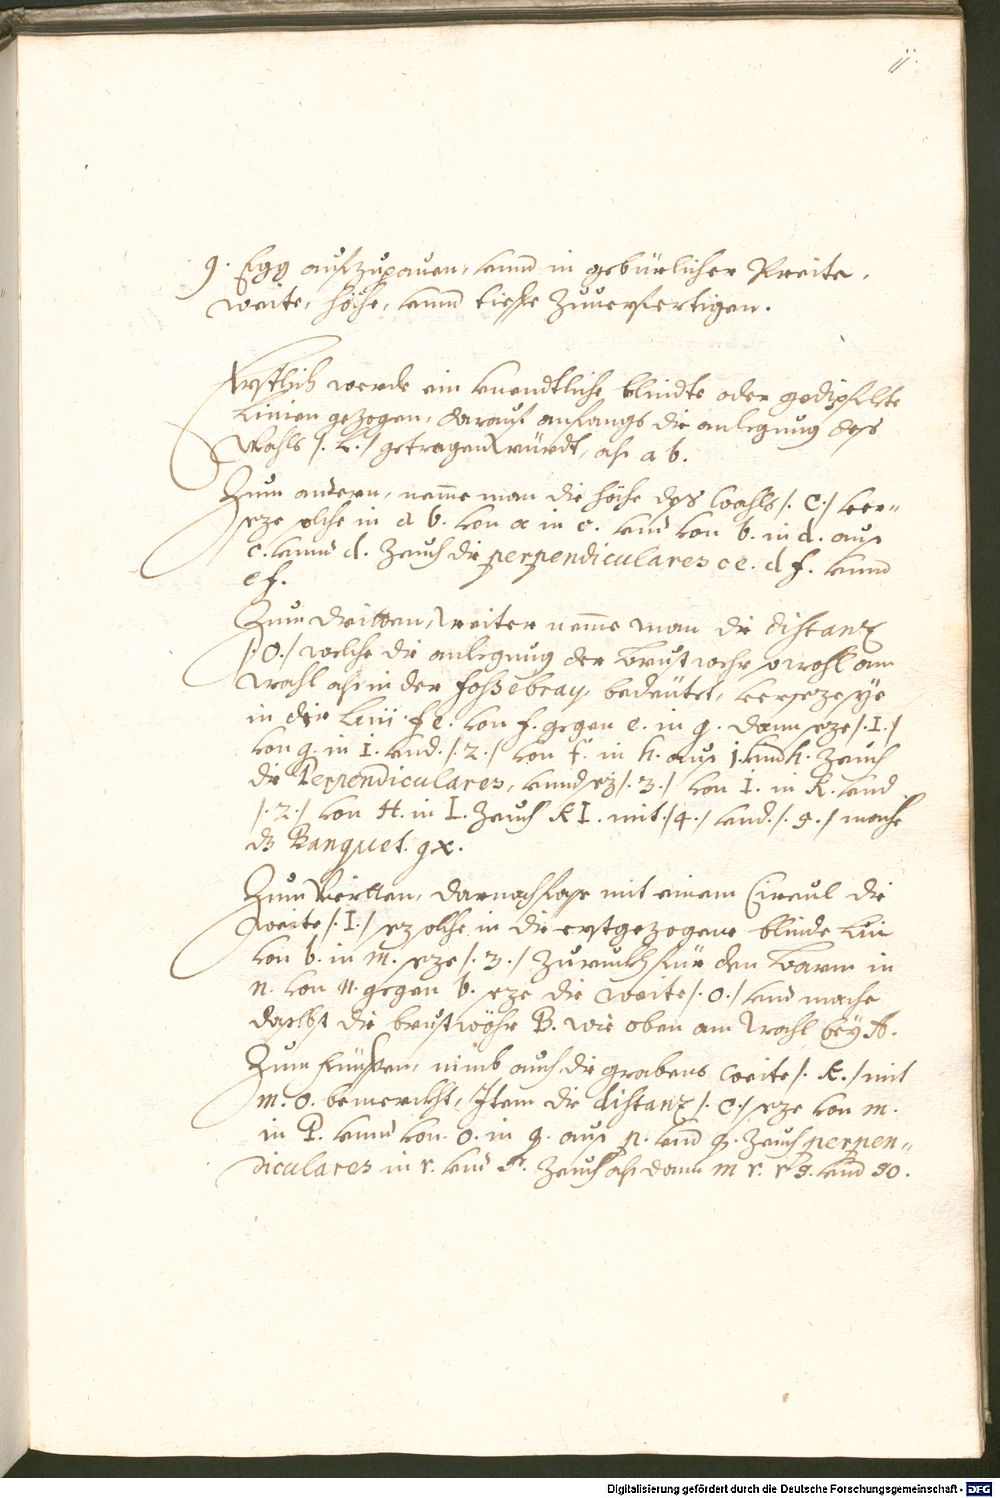 11.
9. Egg aufzupauen, vnnd in gebürlicher Preite,
weite, höhe, vnnd tieffe zuuerfertigen.
Erstlich werde ein vnendtliche blindte oder gedipfelte
Linien gezogen, darauf anfangs die anlegung des
Wahls /. L./ getragen würdt, als a b.
Zum andern, neme man die höhe des Wahls /. C./ ver=
seze solche in a b. von a in c. vnd von b. in d. aus
c. vnnd d. Zeuch die perpendiculares c e. d f. vnnd
e f.
Zum dritten, Weiter neme man die distanz
/. O./ welche die anlegung der Brustwehr sowohl am
Wahl als in der foßsebray, bedeütet, verseze sye
in der Linj f e. von f. gegen e. in g. dann seze /. I./
von g. in i. vnd. /. 2./ von f. in h. aus i. vnd h. Zeuch
die Perpendiculares, vnnd sez /. 3./ von i. in K. vnd
/. 2./ von H. in L. Zeuch K L. mit /4./ vnd. /. 5./ mache
dz Banquet. g x.
Zum Viertten, darnach fasse mit einem Circul die
weite /. I./ sez solche in die erstgezogene blinde Lini
von b. in m. seze /. 3./ zuruckh für den Barm in
n. von n. gegen b. seze die weite /. O./ vnd mache
daselbst die brustwöhr B. wie oben am Wahl bey A.
Zum fünften, nimb auch die grabens weite /. K./ mit
m. o. bemerckht, Item die distanz /. C./ seze von m.
in P. vnnd von. o. in q. aus p. vnd q. Zeuch perpen=
diculares in r. vnd s. Zeuch als dann m r. r s. vnd s o.
Digitalisierung gefördert durch die Deutsche Forschungsgemeinschaft - DFG